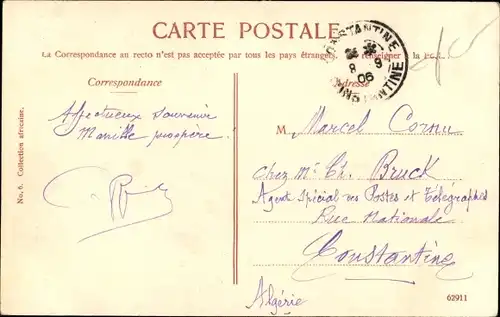 CARTE POSTALE
La Correspondance au recto n'est pas acceptée par tous les pays étrangers. Se renseigner à la Poste
CONSTANTINE
8 9
06
CONSTANTINE
Correspondance
Adresse
Affectueux souvenir
M Marcel Cornu
chez Mr Ch. Bruck
Agent Spécial des Postes et Télégraphes
Rue Nationale
Constantine
Algérie
No. 6. Collection africaine.
62911